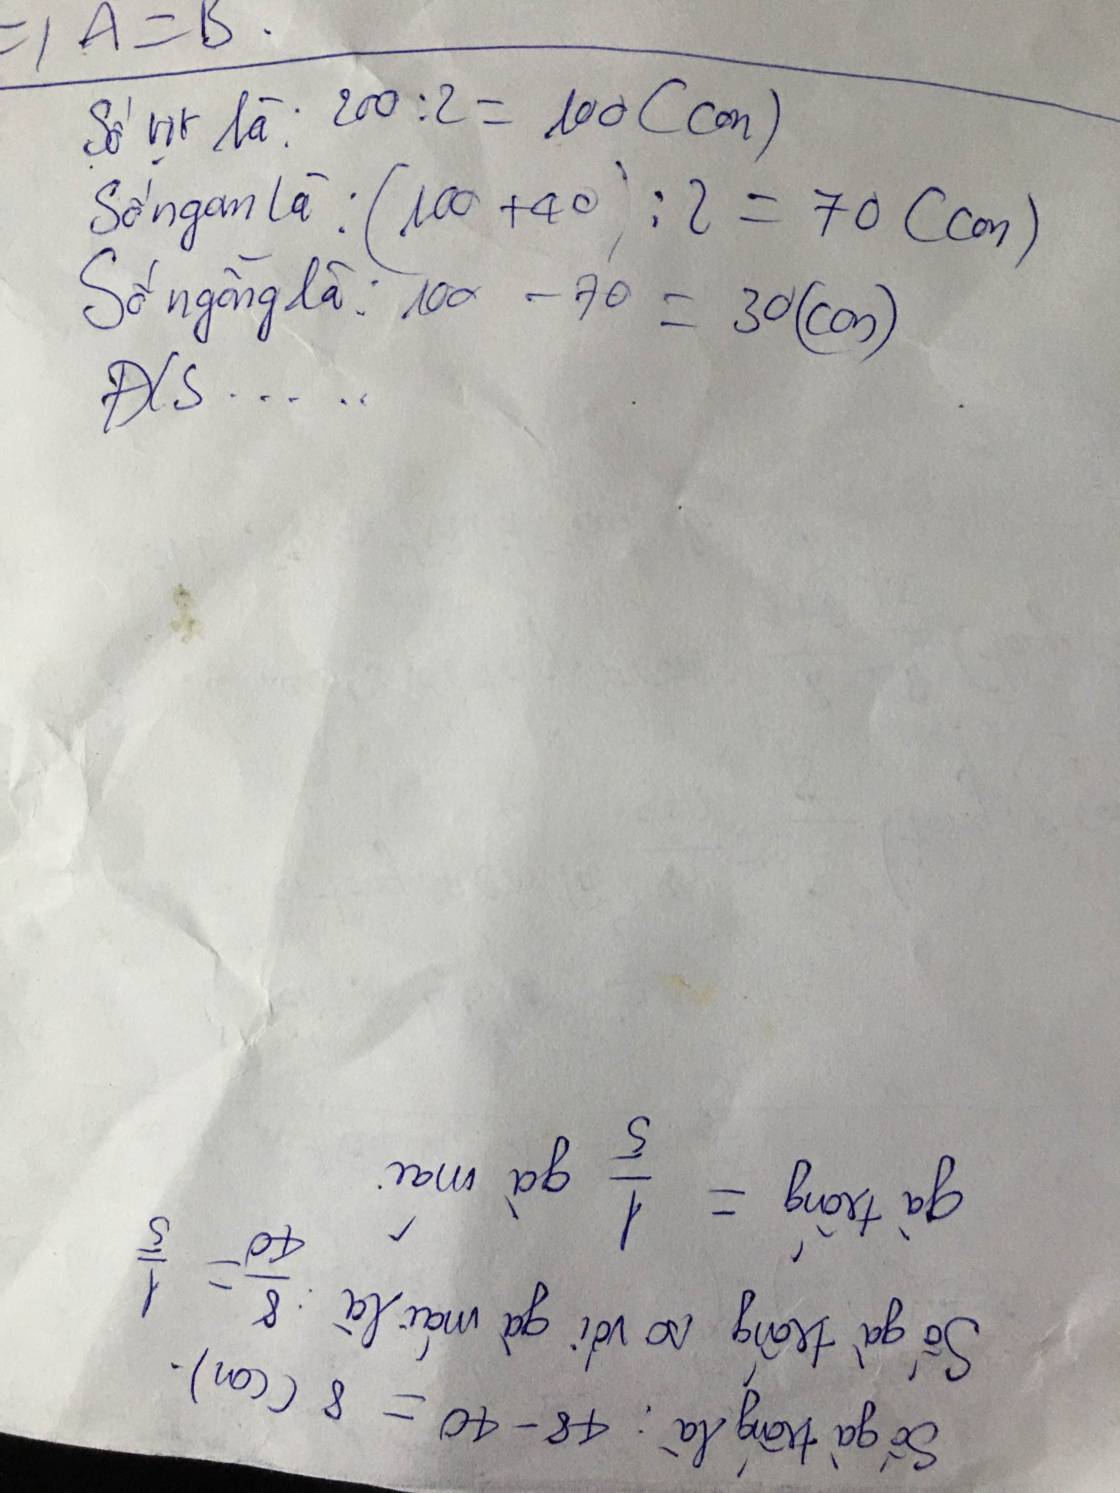 =, A = B.
Số vịt là: 200 : 2 = 100 (con)
Số ngan là: (100 + 40) : 2 = 70 (con)
Số ngỗng là: 100 - 70 = 30 (con)
Đ/S ......
Số gà trống là: 48 - 40 = 8 (con).
Số gà trống so với gà mái là: 8/40 = 1/5
gà trống = 1/5 gà mái